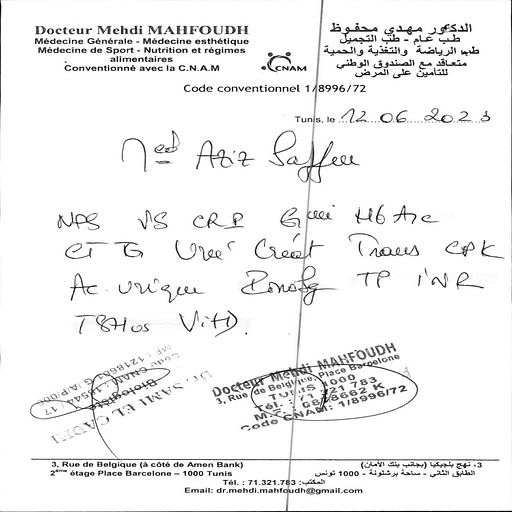 Docteur Mehdi MAHFOUDH
Médecine Générale - Médecine esthétique
Médecine de Sport - Nutrition et régimes
alimentaires
Conventionné avec la C.N.A.M
CNAM
الدكتور مهدي محفوظ
طب عام - طب التجميل
طب الرياضة والتغذية والحمية
متعاقد مع الصندوق الوطني
للتأمين على المرض
Code conventionnel 1/8996/72
Tunis, le 12 06 2023
Med Aziz
NFS VS CRP HbA1c
CT TG Urée Créat Trans CPK
Ac. urique TP INR
TSHus VitD.
Docteur Mehdi MAHFOUDH
3, Rue de Belgique, Place Barcelone
Tunis 1000
Tél. : 71 321 783
Code CNAM: 1/8996/72
DR. SAMI EL
Biologiste
Code CNAM
3, Rue de Belgique (à côté de Amen Bank)
2ème étage Place Barcelone – 1000 Tunis
3، نهج بلجيكيا (بجانب بنك الأمان)
الطابق الثاني - ساحة برشلونة - 1000 تونس
Tél. : 71.321.783 :المكتب
Email: dr.mehdi.mahfoudh@gmail.com